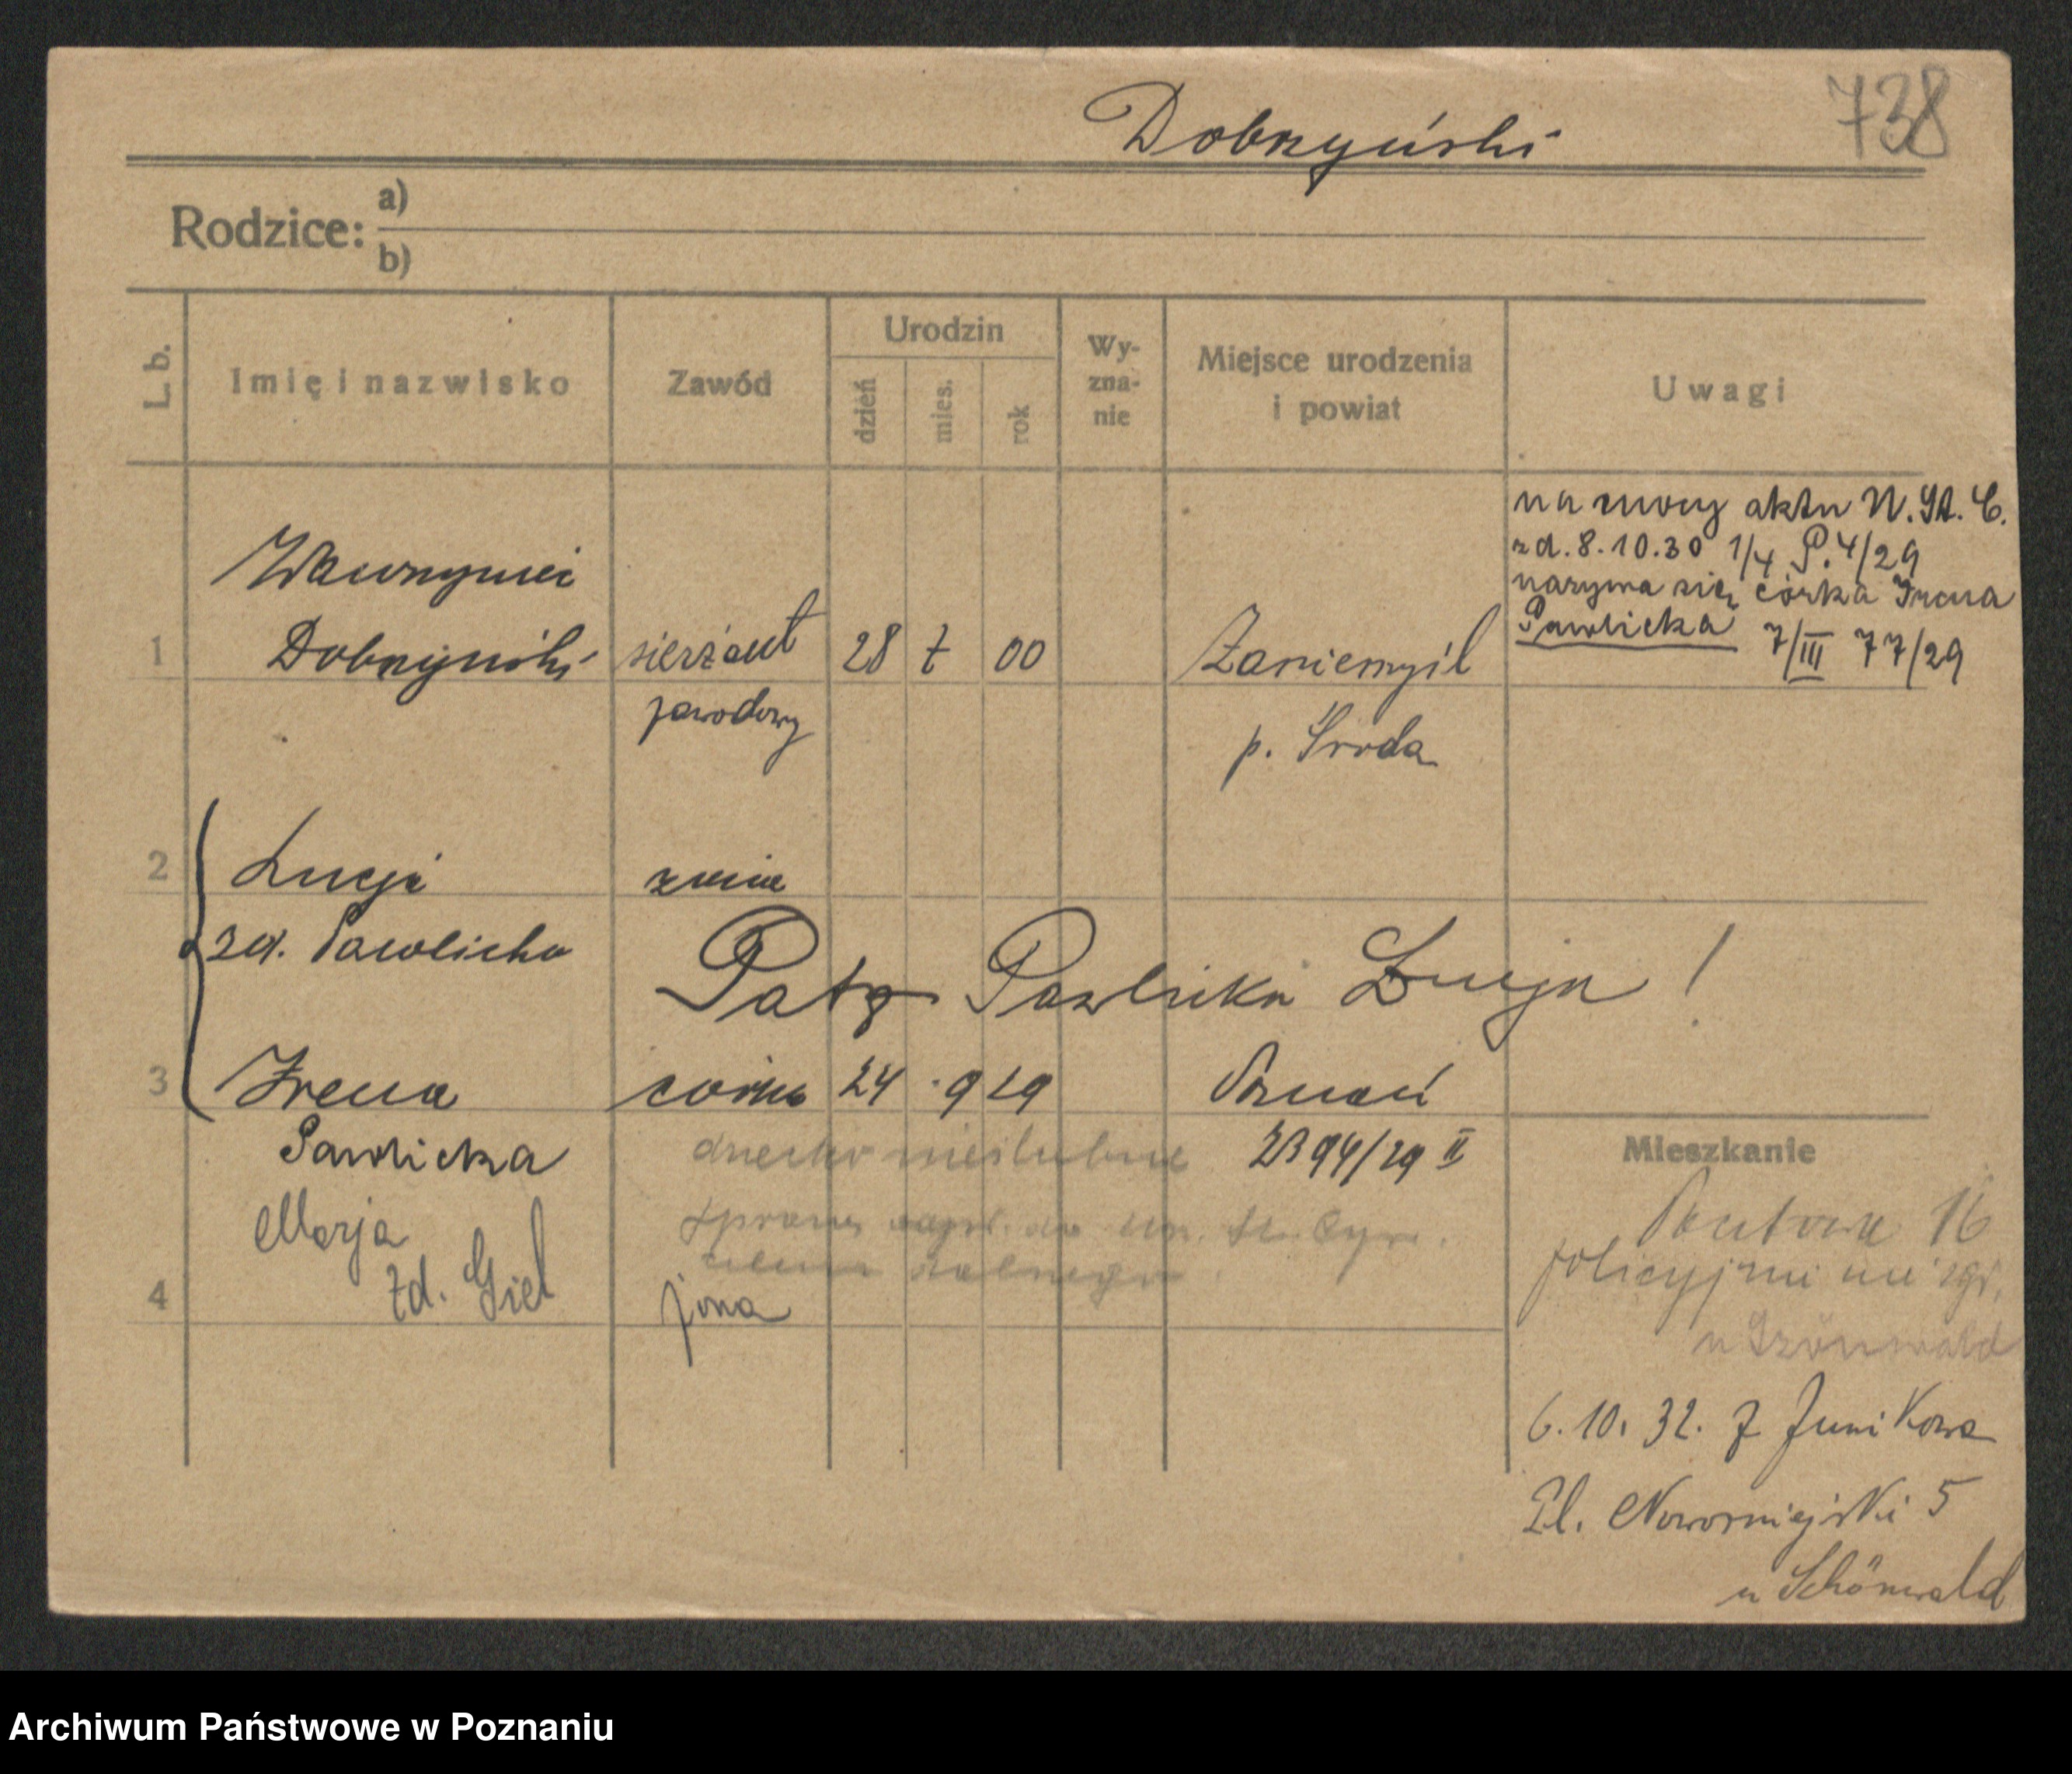 738
Dobrzyński
Rodzice: a)
b)
L. b.
Imię i nazwisko
Zawód
Urodzin
dzień
mies.
rok
Wy-
zna-
nie
Miejsce urodzenia
i powiat
Uwagi
na mocy aktu U. St. C.
z d. 8.10.30 1/4 P. 4/29
nazywa się córka Irena
Pawlicka 7/III 77/29
Wawrzyniec
1 Dobrzyński sierżant 28 7 00 Zaniemyśl
zawodowy
p. Środa
2 Łucja
zd. Pawlicka
Patrz Pawlicka Łucja !
3 Irena córka 24 9 29 Poznań
Pawlicka dziecko nieślubne 2394/29 II
Marja
zd. Giel
4 żona
Mieszkanie
16
policyjnie nie zgł.
u Schönwald
6.10.32. z Junikowa
Pl. Nowomiejski 5
u Schönwald
Archiwum Państwowe w Poznaniu